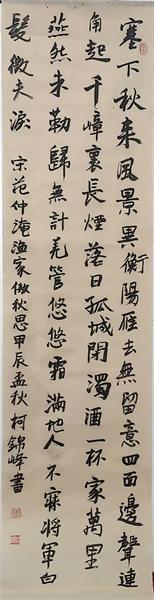 塞下秋来風景異衡陽雁去無留意四面邊聲連
角起千嶂裏長煙落日孤城閉濁酒一杯家萬里
燕然未勒歸無計羌管悠悠霜滿地人不寐將軍白
髮徵夫淚 宋范仲淹漁家傲秋思甲辰孟秋柯錦峰書